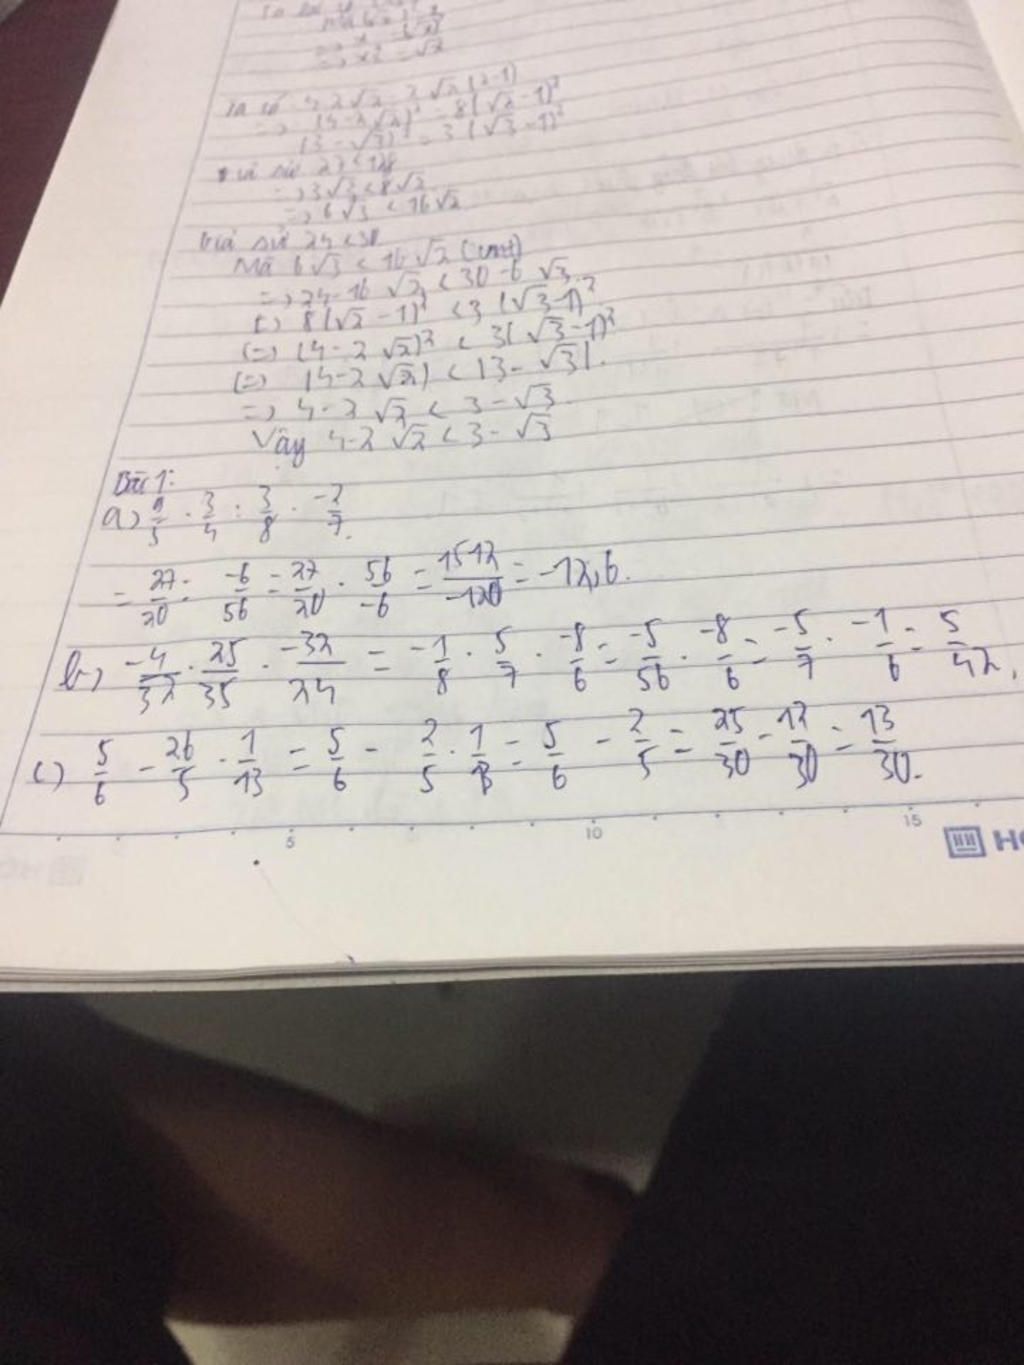 Ta có 4-2√2 = 2√2(√2-1)
=> (4-2√2)² = 8(√2-1)²
(3-√3)² = 3(√3-1)²
27<128
=> 3√3<8√2
=> 6√3<16√2
Giả sử 24<30
Mà 6√3 < 16√2 (cmt)
=> 24-16√2 < 30-6√3
(=) 8(√2-1)² < 3(√3-1)²
(=) (4-2√2)² < 3(√3-1)²
(=) |4-2√2| < |3-√3|.
=> 4-2√2 < 3-√3.
Vậy 4-2√2 < 3-√3
Bài 1:
a) 9/5 . 3/4 : 3/8 . -2/7.
= 27/20 : -6/56 = 27/20 . 56/-6 = 1512/-120 = -12,6.
b) -4/32 . 25/35 . -32/24 = -1/8 . 5/7 . -8/6 = -5/56 . -8/6 = -5/7 . -1/6 = 5/42.
c) 5/6 - 26/5 . 1/13 = 5/6 - 2/5 . 1/1 = 5/6 - 2/5 = 25/30 - 12/30 = 13/30.
5 10 15